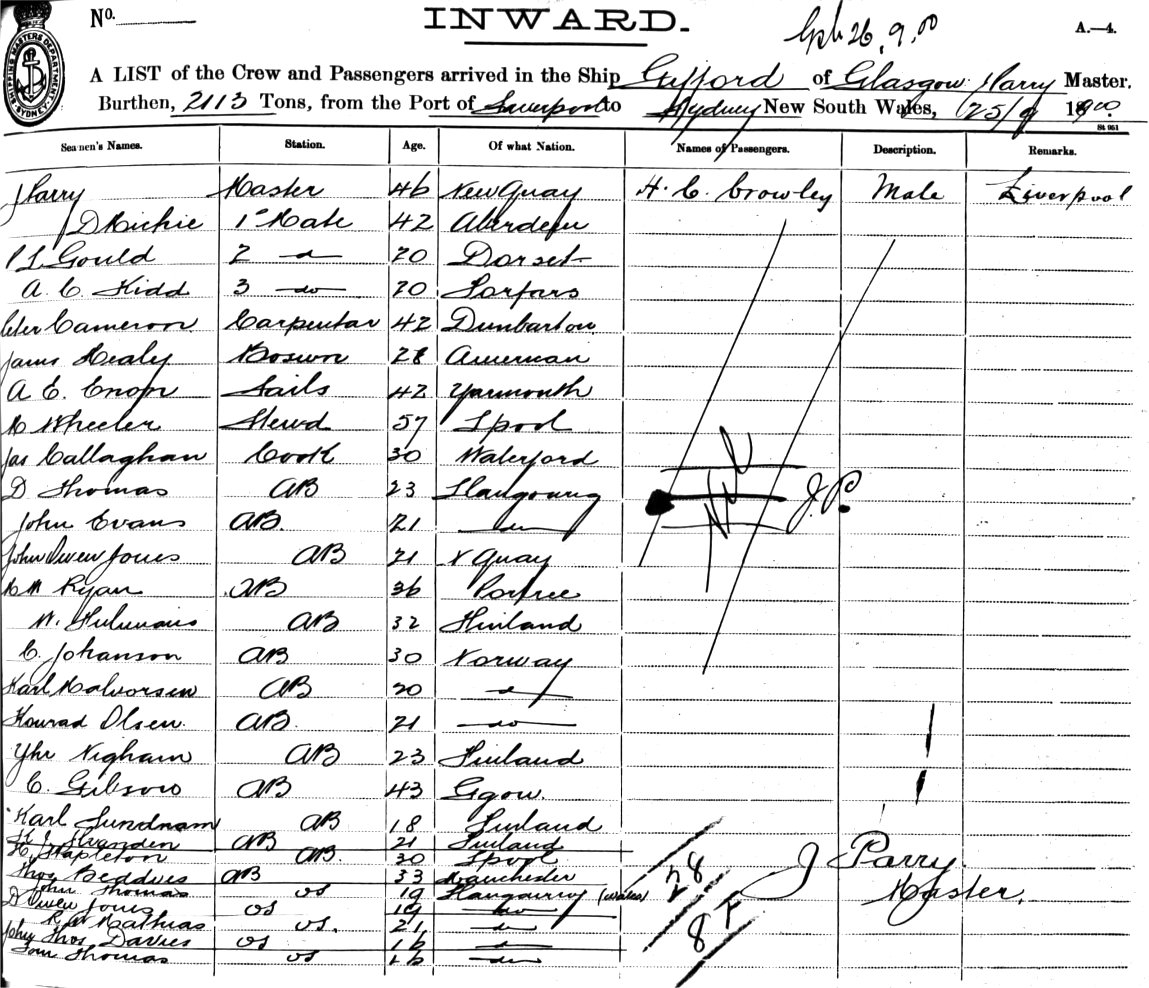 No. INWARD. 26, 9, 00 A.—4.
SHIPPING MASTERS DEPARTMENT SYDNEY
A LIST of the Crew and Passengers arrived in the Ship Gifford of Glasgow Parry Master.
Burthen, 2113 Tons, from the Port of Liverpool to Sydney New South Wales, 25/9 1900
St 951
Seamen's Names. Station. Age. Of what Nation. Names of Passengers. Description. Remarks.
J Parry Master 46 New Quay H. C. Crowley Male Liverpool
D Michie 1st Mate 42 Aberdeen
P L Gould 2 do 20 Dorset
A. C. Kidd 3 do 20 Forfars
Peter Cameron Carpentar 42 Dunbarton
James Healy Boswn 28 American
A E. Cnop Sails 42 Yarmouth
M Wheeler Stewd 57 Lpool
Jas Callaghan Cook 30 Waterford
D Thomas AB 23 J.P.
John Evans AB. 21 do
John Owen Jones AB 21 N Quay
M M Ryan AB 36 Portree
W. AB 32 Finland
C. Johanson AB 30 Norway
Karl Halvorsen AB 20 do
Konrad Olsen. AB. 21 do
Nigham AB 23 Finland
C. Gibson AB 43 Ggow.
Karl Sundnam AB 18 Finland
AB 21 Finland
H. Stapleton AB. 30 Lpool
Thos Beddves AB 33 Manchester
John Thomas OS 19 (Wales)
D Owen Jones OS 19 do
R W Mathias OS. 21 do
John Thos Davies OS 16 do
Tom Thomas OS 16 do
28
8
J Parry.
Master.